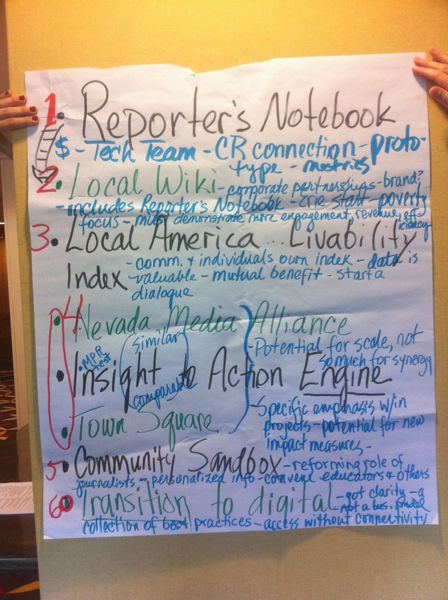 1. Reporter's Notebook
$ - Tech Team - CR connection - proto-
type - metrics
2. Local Wiki - corporate partnerships - brand?
- includes Reporter's Notebook - one state - poverty
focus - must demonstrate more engagement, revenue, efficiency
3. Local America... Livability
Index - comm. & individuals own index - data is
valuable - mutual benefit - start a
dialogue
4 Nevada Media Alliance
- Potential for scale, not
so much for synergy
MPR test
Similar
comparable
Insight to Action Engine
- Specific emphasis w/in
projects - potential for new
impact measures -
Town Square
5 Community Sandbox - reforming role of
journalists - personalized info - convene educators & others
6 Transition to digital - got clarity -
not a bus. model
collection of best practices - access without connectivity